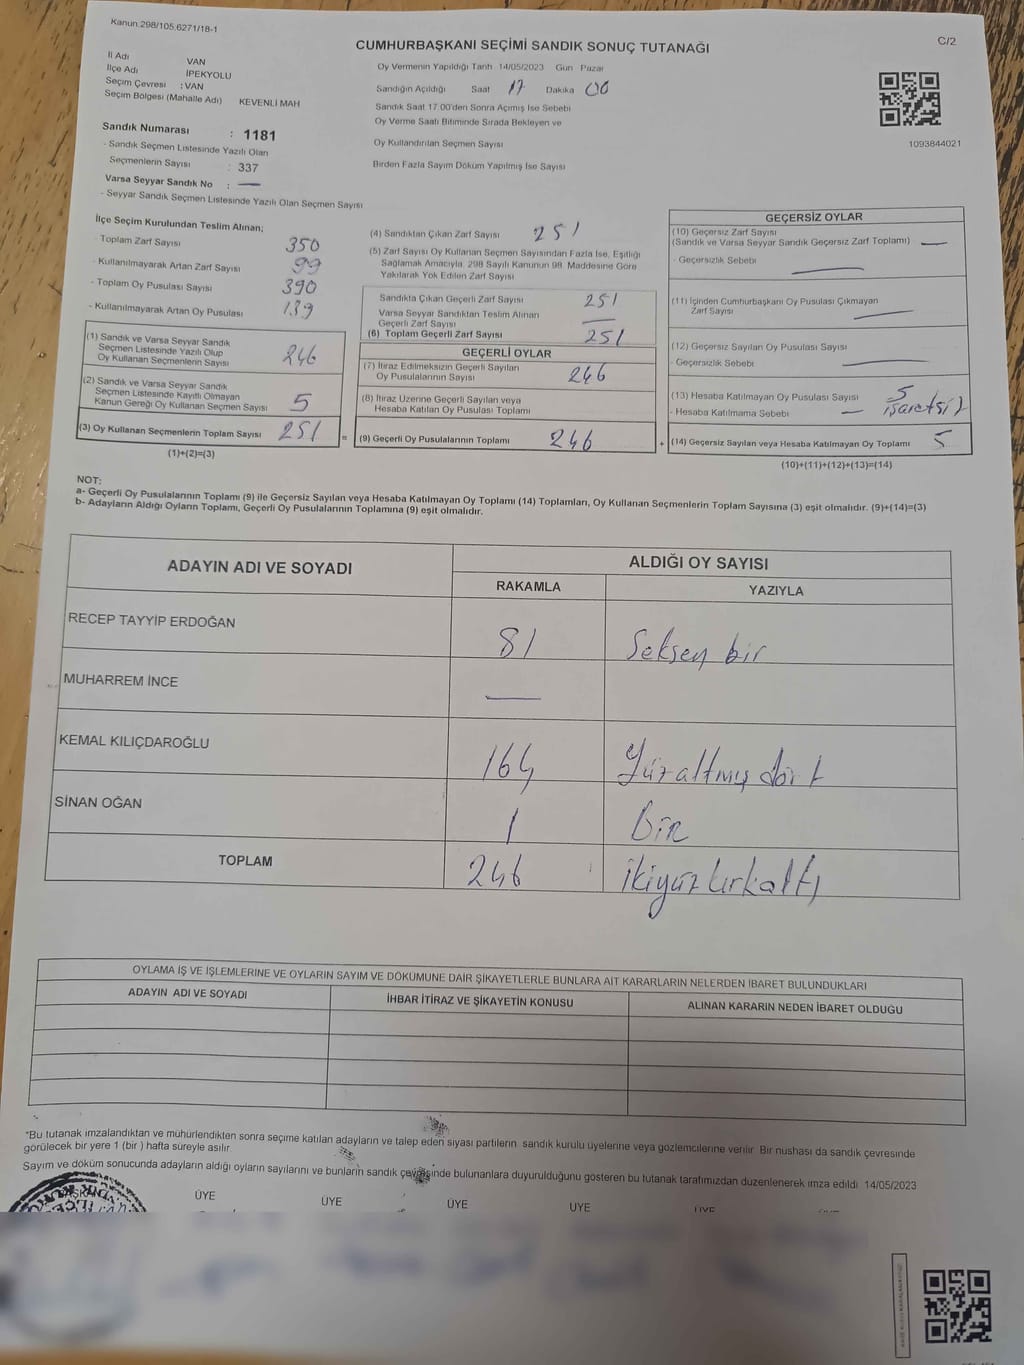 Kanun:298/105.6271/18-1
CUMHURBAŞKANI SEÇİMİ SANDIK SONUÇ TUTANAĞI
C/2
İl Adı VAN
İlçe Adı İPEKYOLU
Seçim Çevresi : VAN
Seçim Bölgesi (Mahalle Adı) KEVENLİ MAH
Oy Vermenin Yapıldığı Tarih 14/05/2023 Gün Pazar
Sandığın Açıldığı Saat 17 Dakika 00
Sandık Saat 17.00'den Sonra Açımış İse Sebebi
Oy Verme Saati Bitiminde Sırada Bekleyen ve
Oy Kullandırılan Seçmen Sayısı
Birden Fazla Sayım Döküm Yapılmış İse Sayısı
1093844021
Sandık Numarası : 1181
- Sandık Seçmen Listesinde Yazılı Olan
Seçmenlerin Sayısı : 337
Varsa Seyyar Sandık No : —
- Seyyar Sandık Seçmen Listesinde Yazılı Olan Seçmen Sayısı
İlçe Seçim Kurulundan Teslim Alınan;
- Toplam Zarf Sayısı 350
- Kullanılmayarak Artan Zarf Sayısı 99
- Toplam Oy Pusulası Sayısı 390
- Kullanılmayarak Artan Oy Pusulası 139
(1) Sandık ve Varsa Seyyar Sandık
Seçmen Listesinde Yazılı Olup
Oy Kullanan Seçmenlerin Sayısı 246
(2) Sandık ve Varsa Seyyar Sandık
Seçmen Listesinde Kayıtlı Olmayan
Kanun Gereği Oy Kullanan Seçmen Sayısı 5
(3) Oy Kullanan Seçmenlerin Toplam Sayısı 251 =
(1)+(2)=(3)
(4) Sandıktan Çıkan Zarf Sayısı 251
(5) Zarf Sayısı Oy Kullanan Seçmen Sayısından Fazla İse, Eşitliği
Sağlamak Amacıyla, 298 Sayılı Kanunun 98. Maddesine Göre
Yakılarak Yok Edilen Zarf Sayısı
Sandıkta Çıkan Geçerli Zarf Sayısı 251
Varsa Seyyar Sandıktan Teslim Alınan
Geçerli Zarf Sayısı —
(6) Toplam Geçerli Zarf Sayısı 251
GEÇERLİ OYLAR
(7) İtiraz Edilmeksizin Geçerli Sayılan
Oy Pusulalarının Sayısı 246
(8) İtiraz Üzerine Geçerli Sayılan veya
Hesaba Katılan Oy Pusulası Toplamı
(9) Geçerli Oy Pusulalarının Toplamı 246 +
GEÇERSİZ OYLAR
(10) Geçersiz Zarf Sayısı
(Sandık ve Varsa Seyyar Sandık Geçersiz Zarf Toplamı) —
- Geçersizlik Sebebi —
(11) İçinden Cumhurbaşkanı Oy Pusulası Çıkmayan
Zarf Sayısı —
(12) Geçersiz Sayılan Oy Pusulası Sayısı
- Geçersizlik Sebebi —
(13) Hesaba Katılmayan Oy Pusulası Sayısı 5
- Hesaba Katılmama Sebebi — işaretsiz
(14) Geçersiz Sayılan veya Hesaba Katılmayan Oy Toplamı 5
(10)+(11)+(12)+(13)=(14)
NOT:
a- Geçerli Oy Pusulalarının Toplamı (9) ile Geçersiz Sayılan veya Hesaba Katılmayan Oy Toplamı (14) Toplamları, Oy Kullanan Seçmenlerin Toplam Sayısına (3) eşit olmalıdır. (9)+(14)=(3)
b- Adayların Aldığı Oyların Toplamı, Geçerli Oy Pusulalarının Toplamına (9) eşit olmalıdır.
ADAYIN ADI VE SOYADI ALDIĞI OY SAYISI
RAKAMLA YAZIYLA
RECEP TAYYİP ERDOĞAN 81 Seksen bir
MUHARREM İNCE —
KEMAL KILIÇDAROĞLU 164 Yüzaltmış dört
SİNAN OĞAN 1 Bir
TOPLAM 246 ikiyüzkırkaltı
OYLAMA İŞ VE İŞLEMLERİNE VE OYLARIN SAYIM VE DÖKÜMÜNE DAİR ŞİKAYETLERLE BUNLARA AİT KARARLARIN NELERDEN İBARET BULUNDUKLARI
ADAYIN ADI VE SOYADI İHBAR İTİRAZ VE ŞİKAYETİN KONUSU ALINAN KARARIN NEDEN İBARET OLDUĞU
*Bu tutanak imzalandıktan ve mühürlendikten sonra seçime katılan adayların ve talep eden siyasi partilerin sandık kurulu üyelerine veya gözlemcilerine verilir. Bir nushası da sandık çevresinde
görülecek bir yere 1 (bir ) hafta süreyle asılır.
Sayım ve döküm sonucunda adayların aldığı oyların sayılarını ve bunların sandık çevresinde bulunanlara duyurulduğunu gösteren bu tutanak tarafımızdan düzenlenerek imza edildi. 14/05/2023
BAŞKAN ÜYE ÜYE ÜYE ÜYE ÜYE